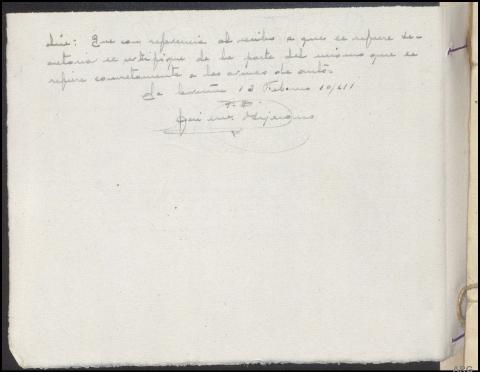 dice: Que con referencia al recibo a que se refiere se
autoria se certifique de la parte del mismo que se
refiere concretamente a las armas de autos.
La Coruña 12 Febrero 1941
ARG